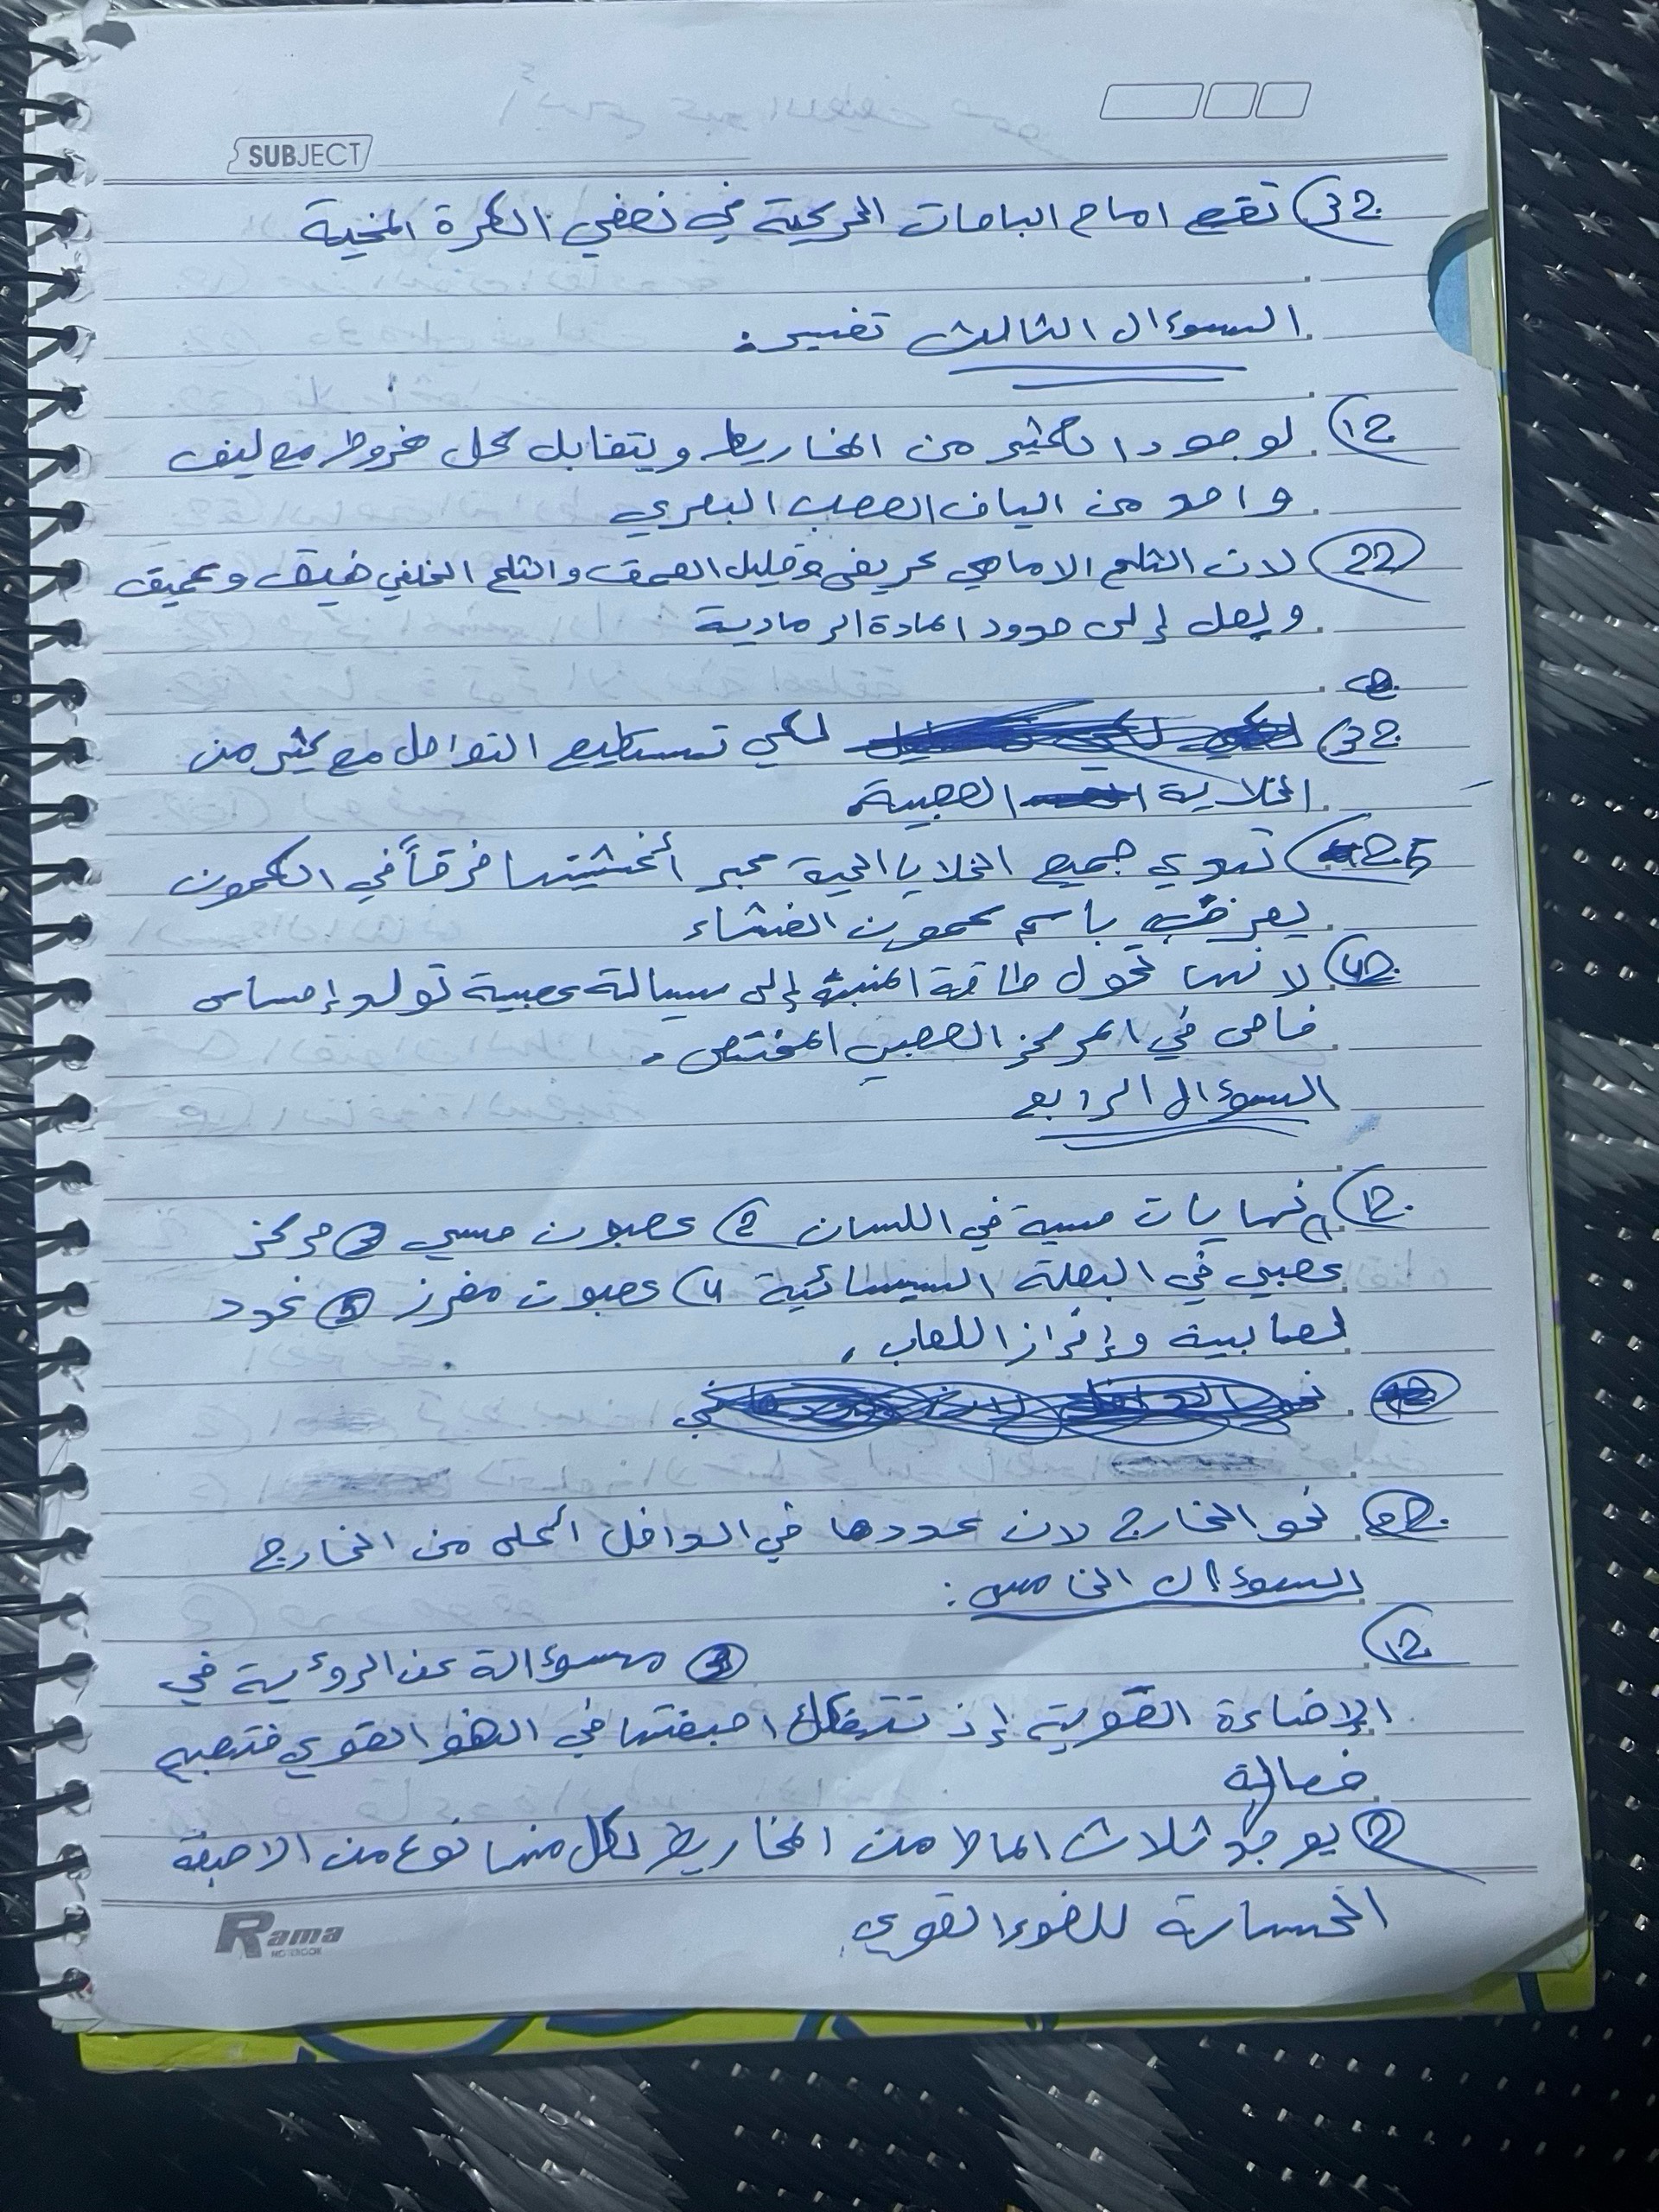 SUBJECT
32) تقع امام الباحات الحركية في نصفي الكرة المخية
السوءال الثالث تفسير:
12) لوجود الكثير من المخاريط ويتقابل كل مخروط مع ليف
واحد من الياف العصب البصري
22) لان الثلم الامامي عريض وقليل العمق والثلم الخلفي ضيق وعميق
ويصل إلى حدود المادة الرمادية
32) لكي تستطيع التواصل مع كثير من
الخلاية العصبية.
25) تبدي جميع الخلايا الحية عبر أغشيتها فرقاً في الكمون
يعرف باسم كمون الغشاء
42) لانها تحول طاقة المنبه إلى سيالة عصبية تولد إحساس
خاص في المركز العصبي المختص.
السوءال الرابع
12) 1) نهايات حسية في اللسان 2) عصبون حسي 3) مركز
عصبي في البصلة السيسائية 4) عصبون مفرز 5) غدد
لعابية وإفراز اللعاب.
22) نحو الخارج لان عددها في الداخل اكلى من الخارج
السوءال الخامس:
12) 3) مسوءالة عن الروءية في
الإضاءة القوية إذ تتفكك اصبغتها في الضوء القوي فتصبح
فعالة
2) يوجد ثلاث انماط من المخاريط لكل منها نوع من الاصبغة
الحساسة للضوء القوي
Rama
NOTEBOOK